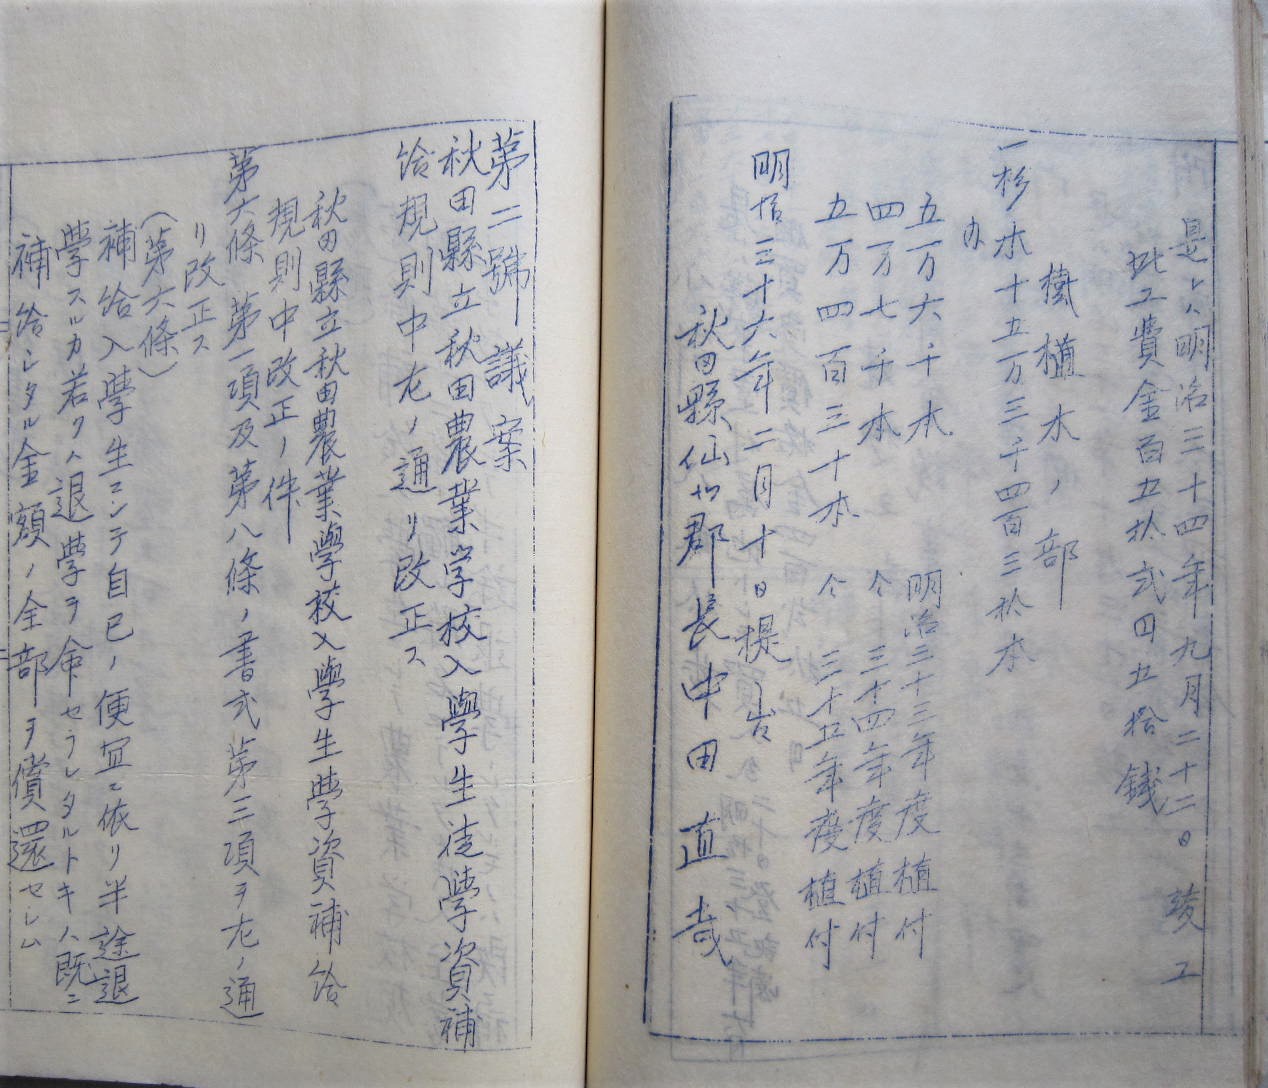 是レハ明治三十四年九月二十二日竣工
此工費金百五拾弐円五拾銭
樹植木ノ部
一杉木十五万三千四百三拾本
内
五万六千本 明治三十三年度植付
四万七千本 仝 三十四年度植付
五万四百三十本 仝 三十五年度植付
明治三十六年二月十日提出
秋田縣仙北郡長中田直哉
第二號議案
秋田縣立秋田農業学校入學生徒學資補
給規則中左ノ通リ改正ス
秋田縣立秋田農業學校入學生學資補給
規則中改正ノ件
第六條第一項及第八條ノ書式第三項ヲ左ノ通
リ改正ス
(第六條)
補給入學生ニシテ自己ノ便宜ニ依リ半途退
學スルカ若クハ退學ヲ命セラレタルトキハ既ニ
補給シタル金額ノ全部ヲ償還セシム